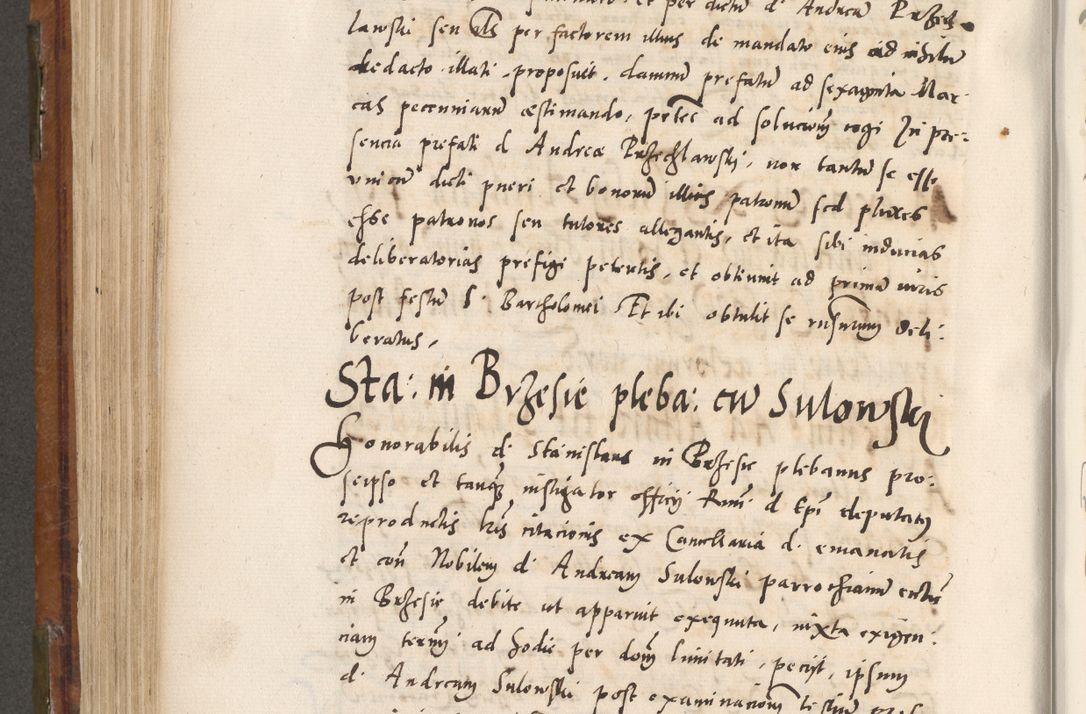 et per dictum d. Andream Przecz
lawski seu als per factorem illius de mandato eius ad
dedacto illati, proposuit. damnum prefatum ad sexaginta Mar-
cas pecuniarum estimando, poñes ad solucioñ cogi In pre-
sencia prefati d Andree Przechlawski, non tantum se esse
unicum dicti pueri et bonorum illius patronum sed plures
esse patronos seu tutores allegantis, et ita sibi inducias
deliberatorias prefigi petentis, et obtinuit ad primam iuris
post festum S. Bartholomei Et ibi obtulit se rusurum deli-
beratus,
Sta: in Brzesie pleba: cū Sulowski
Honorabilis d. Stanislaus in Brzesie plebanus pro-
seipso et tanqz instigator officij Rmi d Epi deputatus
reproductis lris citacionis ex Cancellaria d. emanatis
et coñ Nobilem d. Andream Sulowski parrochianum eccliæ
in Brzesie debite ut apparuit exequuta, iuxta exigen-
ciam termi ad hodie per dom limitati, pecijt, ipsum
d. Andream Sulowski post examinacionem testium